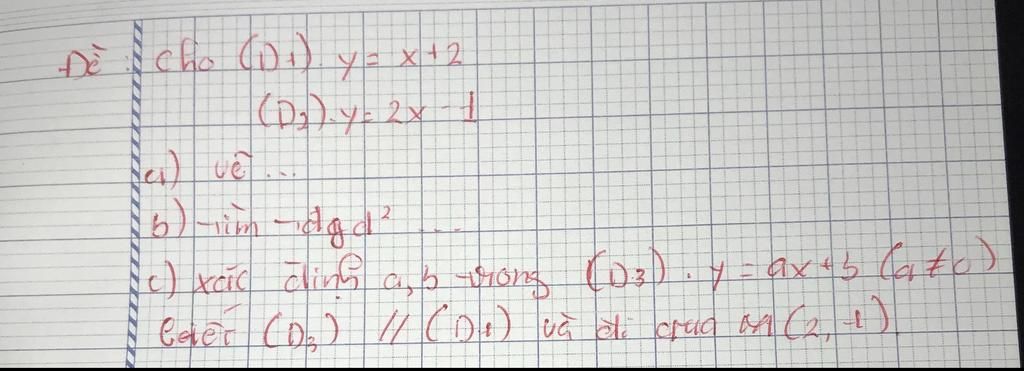 Đề : cho (D1). y = x + 2
(D2). y = 2x - 1
a) vẽ ...
b) tìm tđgđ² ...
c) xác định a, b trong (D3). y = ax + b (a ≠ 0)
biết (D3) // (D1) và đi qua M(2, -1)